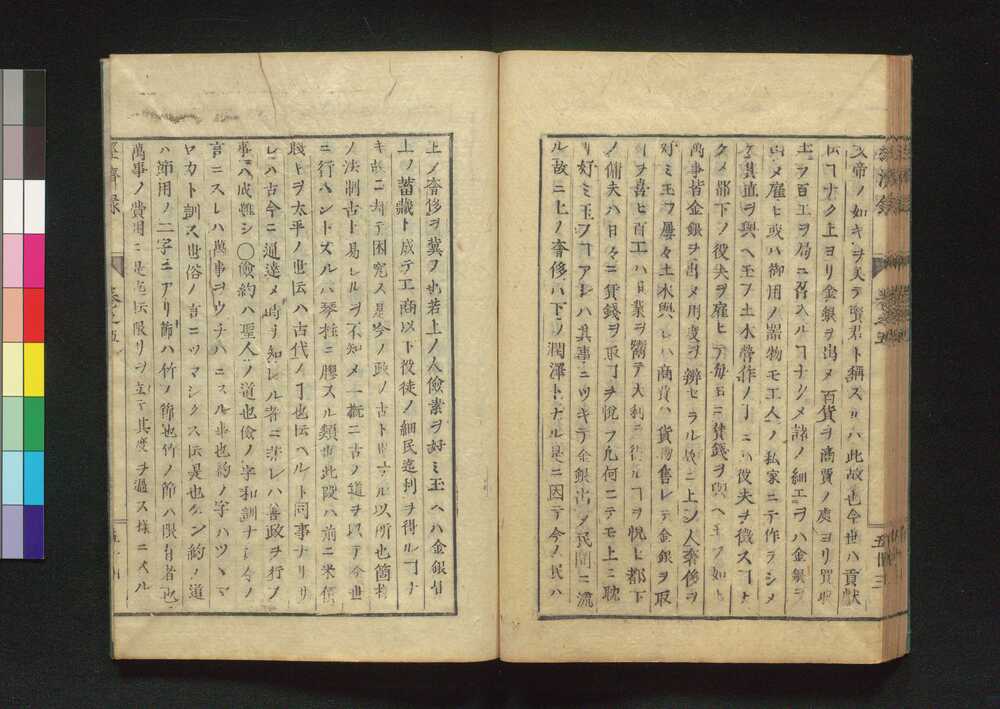 文帝ノ如キヲ以テ賢君ト稱スルハ此故也今世ハ貢獻
ナク上ヨリ金銀ヲ出メ百貨ヲ商賈ノ處ヨリ買取
土フ百工ヲ局ニ召入ルヿナシメ諸ノ細工ヲハ金銀ヲ
出メ雇ヒ或ハ御用ノ器物モ工人ノ私家ニテ作ラシメ
其直ヲ與ヘ玉フ土木營作ノヿニハ役夫ヲ徴スヿ
ナクメ都下ノ役夫ヲ雇ヒテ毎日ニ賃錢ヲ與ヘ玉フ如此
萬事皆金銀ヲ出メ用度ヲ辨セラル故ニ上ノ人奢侈ヲ
好ミ玉フ屡々土木興レハ商賈ハ貨物售レテ金銀ヲ取
ヲ喜ヒ百工ハ日業ヲ鬻テ大利ヲ得ルヿヲ悦ヒ都下
ノ傭夫ハ日々ニ賃錢ヲ取ヿヲ悦フ凡何ニテモ上ニ耽
リ好ミ玉フヿアレハ其事ニツキテ金銀出メ民間ニ流
ル故ニ上ノ奢侈ハ下ノ潤澤トナル是ニ因テ今ノ民ハ
上ノ奢侈ヲ冀フ也若上ノ人儉素ヲ好ミ玉ヘハ金銀皆
上ノ蓄藏ト成テ工商以下役徒ノ細民迄利ヲ得ルヿナ
キ故ニ却テ困窮ス是今ノ政ノ古ト異ナル以所也箇樣
ノ法制古ト易レルヲ不知メ一概ニ古ノ道ヲ以テ今世
ニ行ハントスルハ琴柱ニ膠スル類也此段ハ前ニ米價
賤キヲ太平ノ世トハ古代ノヿ也ト云ヘルト同事ナリ
レハ古今ニ通達メ時ヲ知レル者ニ非レハ善政ヲ行フ
事ハ成難シ〇儉約ハ聖人ノ道也儉ノ字和訓ナシ今ノ
言ニスレハ萬事ヲウチハニスル事也約ノ字ハツヽマ
ヤカト訓ス世俗ノ言ニツマシクス云是也ケン約ノ道
ハ節用ノ二字ニアリ節ハ竹ノ節也竹ノ節ハ限有者也
萬事ノ費用ニ是迄ト云限リヲ立テ其度ヲ過ス樣ニスル
經濟録
卷之五